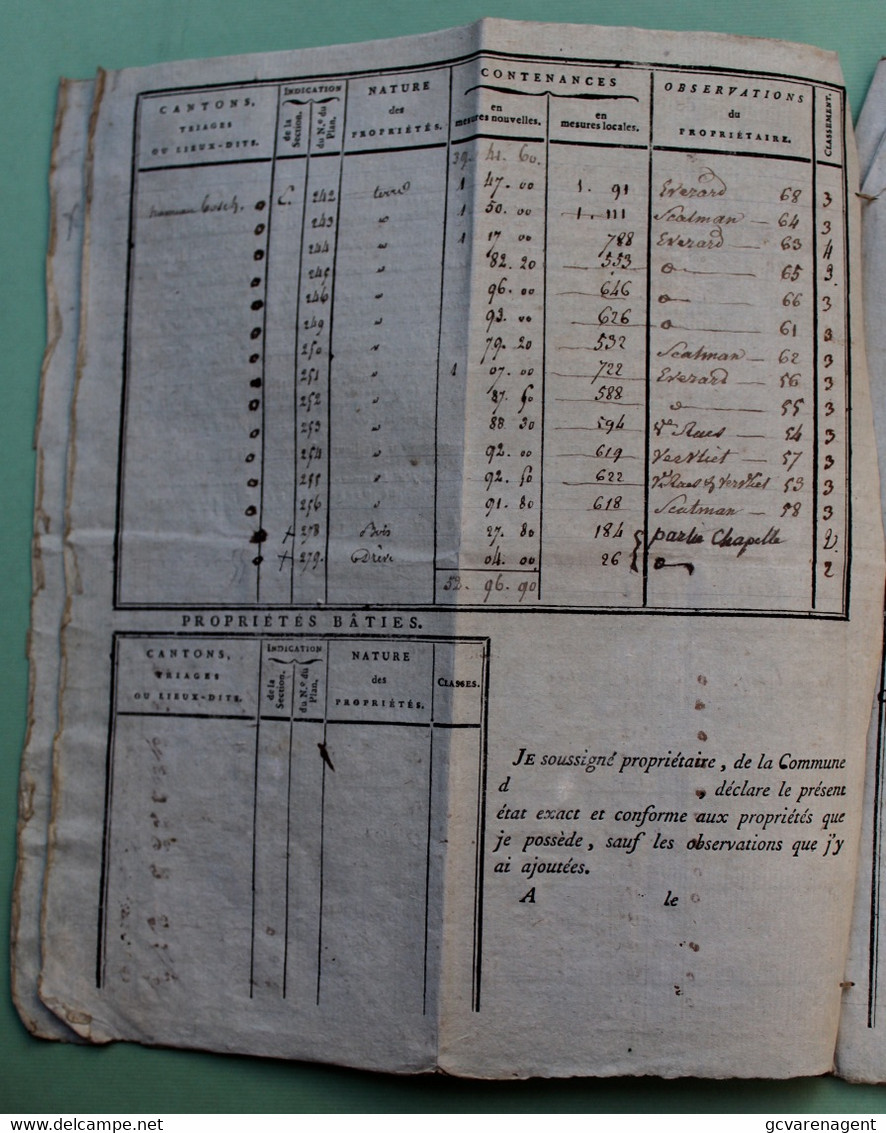 CANTONS, TRIAGES OU LIEUX-DITS. INDICATION de la Section. du N.º du Plan. NATURE des PROPRIÉTÉS. CONTENANCES en mesures nouvelles. en mesures locales. OBSERVATIONS du PROPRIÉTAIRE. CLASSEMENT.
39. 41. 60.
C. 242 terre 1 47. 00 1. 91 Everard 68 3
o 243 " 1 50. 00 1. 111 Scatman — 64 3
o 244 " 1 17 00 788 Everard — 63 4
o 245 " 82. 20 553 o — 65 3
o 246 " 96. 00 646 o — 66 3
o 249 " 93. 00 626 o — 61 3
o 250 " 79. 20 532 Scatman — 62 3
o 251 " 1 07. 00 722 Everard — 56 3
o 252 " 87. 50 588 o — 55 3
o 253 " 88. 30 594 Vᵉ Raes — 54 3
o 254 " 92. 00 619 Vervliet — 57 3
o 255 " 92. 50 622 Vᵉ Raes & Vervliet 53 3
o 256 " 91. 80 618 Scatman — 58 3
o + 278 Bois 27. 80 184 partie Chapelle 2.
o + 279. Drève 04. 00 26 o 2
52. 96. 90
PROPRIÉTÉS BÂTIES.
CANTONS, TRIAGES OU LIEUX-DITS. INDICATION de la Section. du N.º du Plan. NATURE des PROPRIÉTÉS. CLASSES.
JE soussigné propriétaire, de la Commune
d , déclare le présent
état exact et conforme aux propriétés que
je possède, sauf les observations que j'y
ai ajoutées.
A le
delcampe.net
gcvarenagent